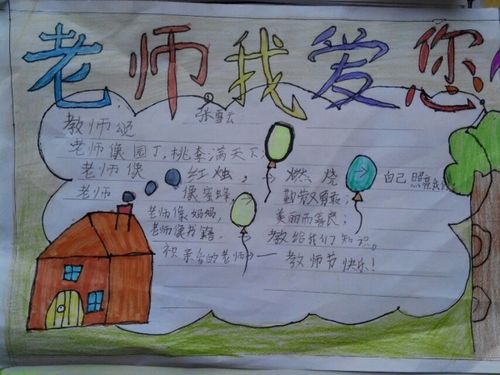 老师我爱您
教师颂
老师像园丁,桃李满天下,
老师像红烛,燃烧自己照亮我们
老师像蜜蜂,勤劳又勇敢;
老师像妈妈,美丽而善良;
老师像书籍,教给我们知识。
祝亲爱的老师——教师节快乐!